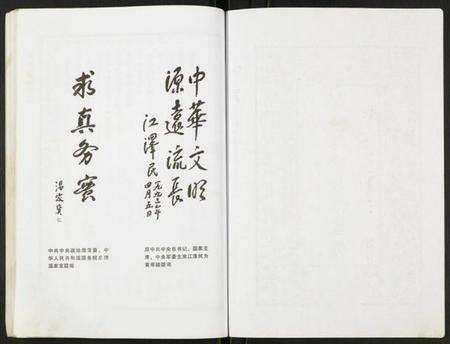 中華文明
源遠流長
江澤民
一九九二年
四月五日
原中共中央总书记、国家主
席、中央军委主席江泽民为
黄帝陵题词
求真务實
温家宝
中共中央政治局常委、中
华人民共和国国务院总理
温家宝题词